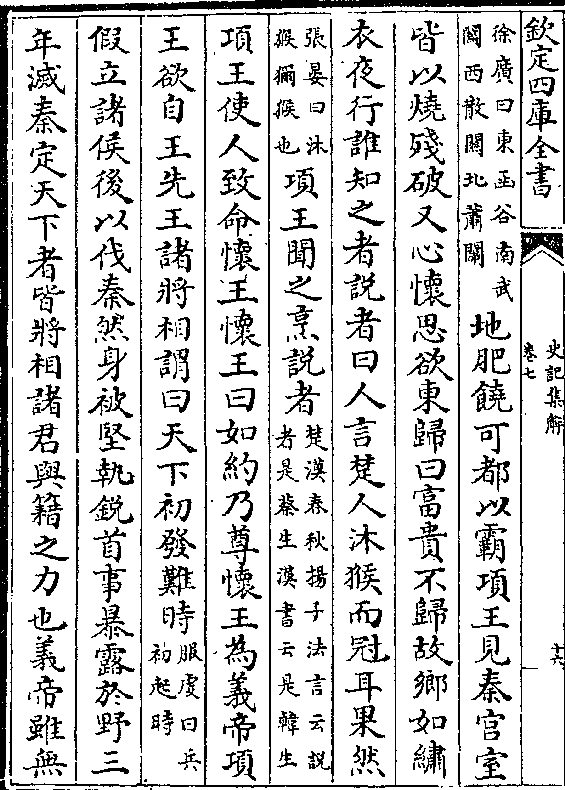 欽定四庫全書
史記集解
卷七
十六
徐廣曰東函谷南武
關西散關北蕭關
地肥饒可都以霸項王見秦宮室
皆以燒殘破又心懷思欲東歸曰富貴不歸故鄉如繡
衣夜行誰知之者說者曰人言楚人沐猴而冠耳果然
張晏曰沐
猴獮猴也
項王聞之烹說者
楚漢春秋揚子法言云說
者是蔡生漢書云是韓生
項王使人致命懷王懷王曰如約乃尊懷王為義帝項
王欲自王先王諸將相謂曰天下初發難時
服虔曰兵
初起時
假立諸侯後以伐秦然身被堅執銳首事暴露於野三
年滅秦定天下者皆將相諸君與籍之力也義帝雖無